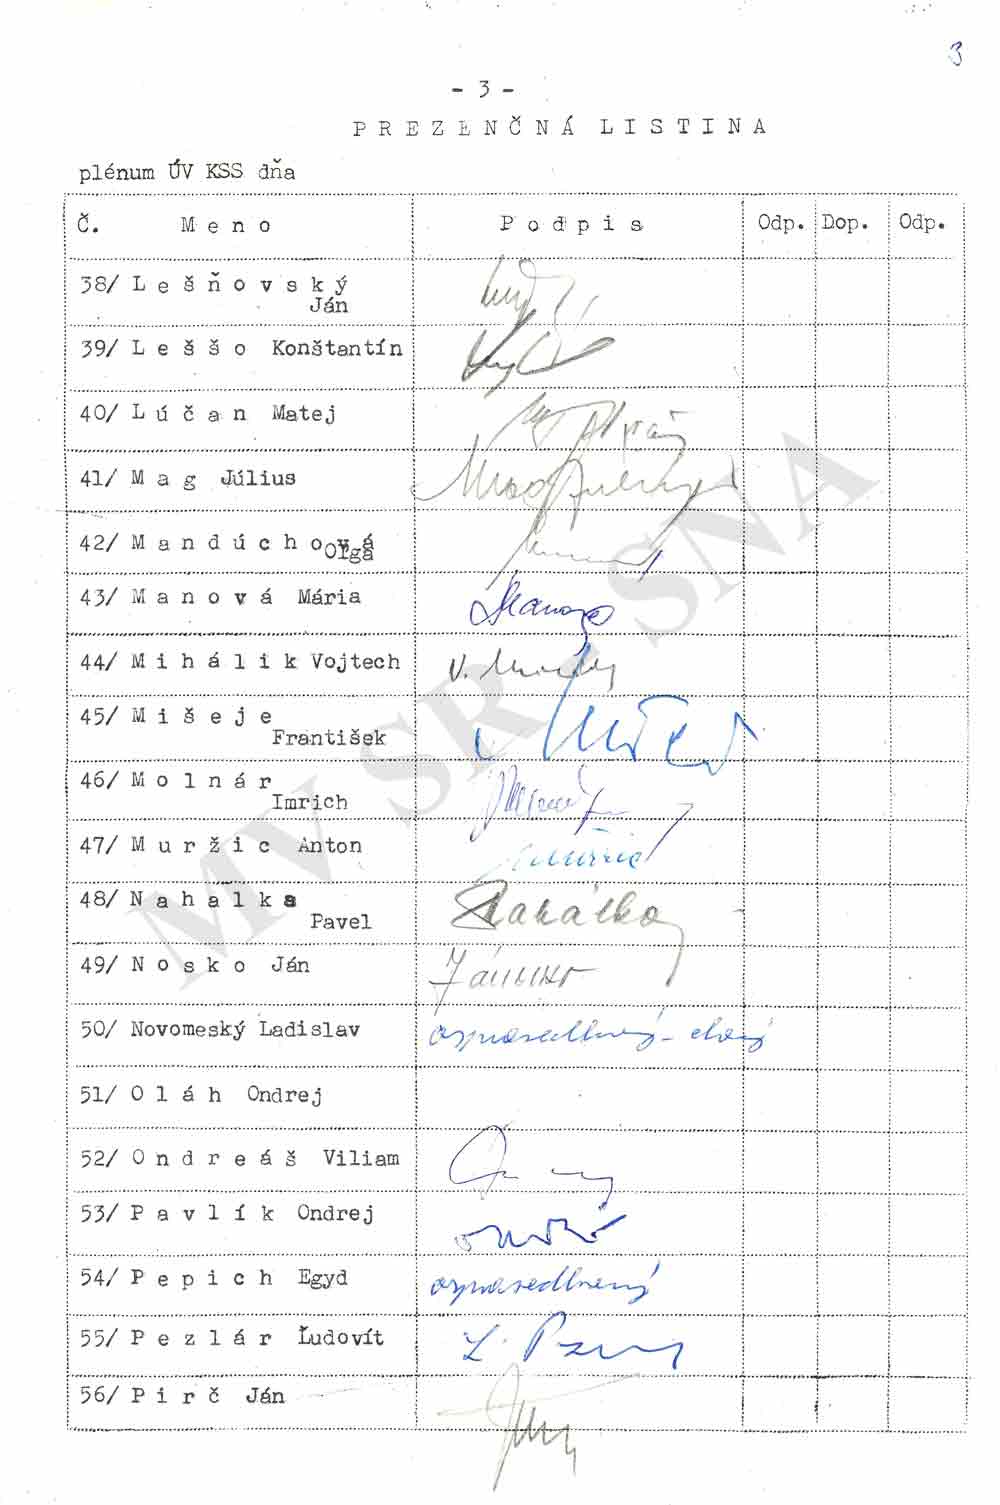 3
- 3 -
PREZENČNÁ LISTINA
plénum ÚV KSS dňa
Č. Meno Podpis Odp. Dop. Odp.
38/ Lešňovský
Ján
39/ Leššo Konštantín
40/ Lúčan Matej
41/ Mag Július
42/ Mandúchová
Oľga
43/ Manová Mária
44/ Mihálik Vojtech
45/ Mišeje
František
46/ Molnár
Imrich
47/ Muržic Anton
48/ Nahalka
Pavel
49/ Nosko Ján
50/ Novomeský Ladislav ospravedlnený - chorý
51/ Oláh Ondrej
52/ Ondreáš Viliam
53/ Pavlík Ondrej
54/ Pepich Egyd ospravedlnený
55/ Pezlár Ľudovít
56/ Pirč Ján
MV SR - SNA